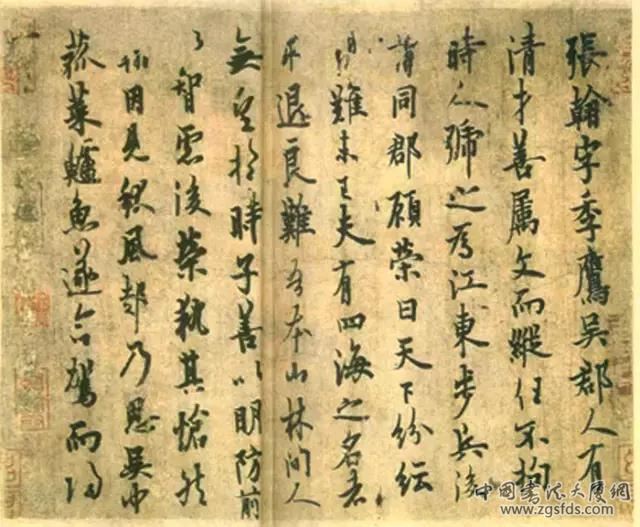 張翰字季鷹吳郡人有
清才善屬文而縱任不拘
時人號之為江東步兵後
謂同郡顧榮曰天下紛紜
禍難未已夫有四海之名者
求退良難吾本山林間人
無望於時子善以明防前
以智慮後榮執其愴然
翰因見秋風起乃思吳中
菰菜鱸魚遂命駕而歸
中國書法大廈網
www.zgsfds.com